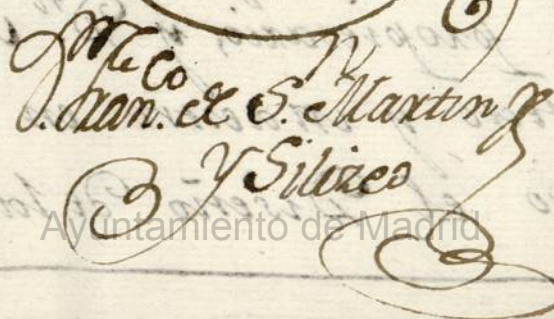 Fran.co de S. Martin
y Silizeo
Ayuntamiento de Madrid